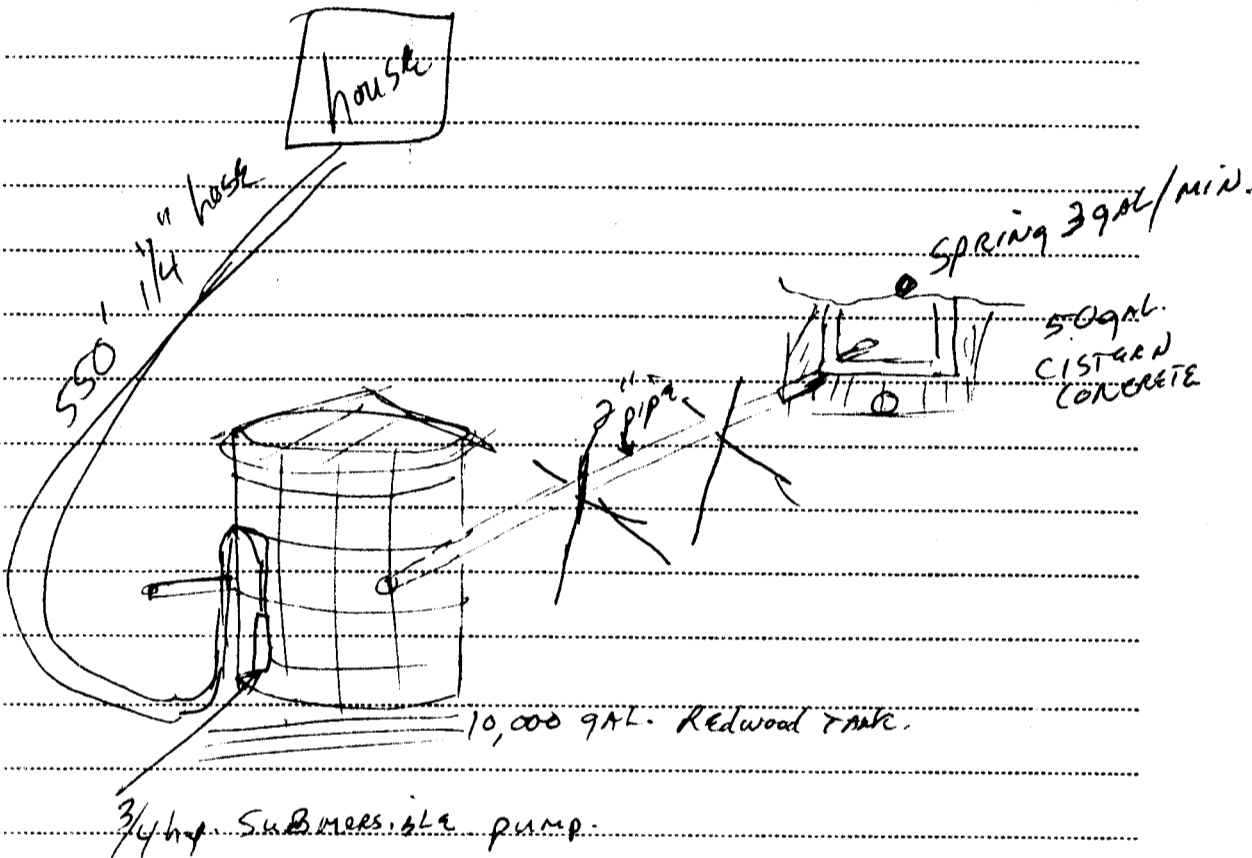 house
550' 1 1/4" hose
SPRING 3 gAL/MIN.
50 gAL.
CISTERN
CONCRETE
2" pipe
10,000 gAL. Redwood TANK.
3/4 hp. SUBMERSIBLE pump.